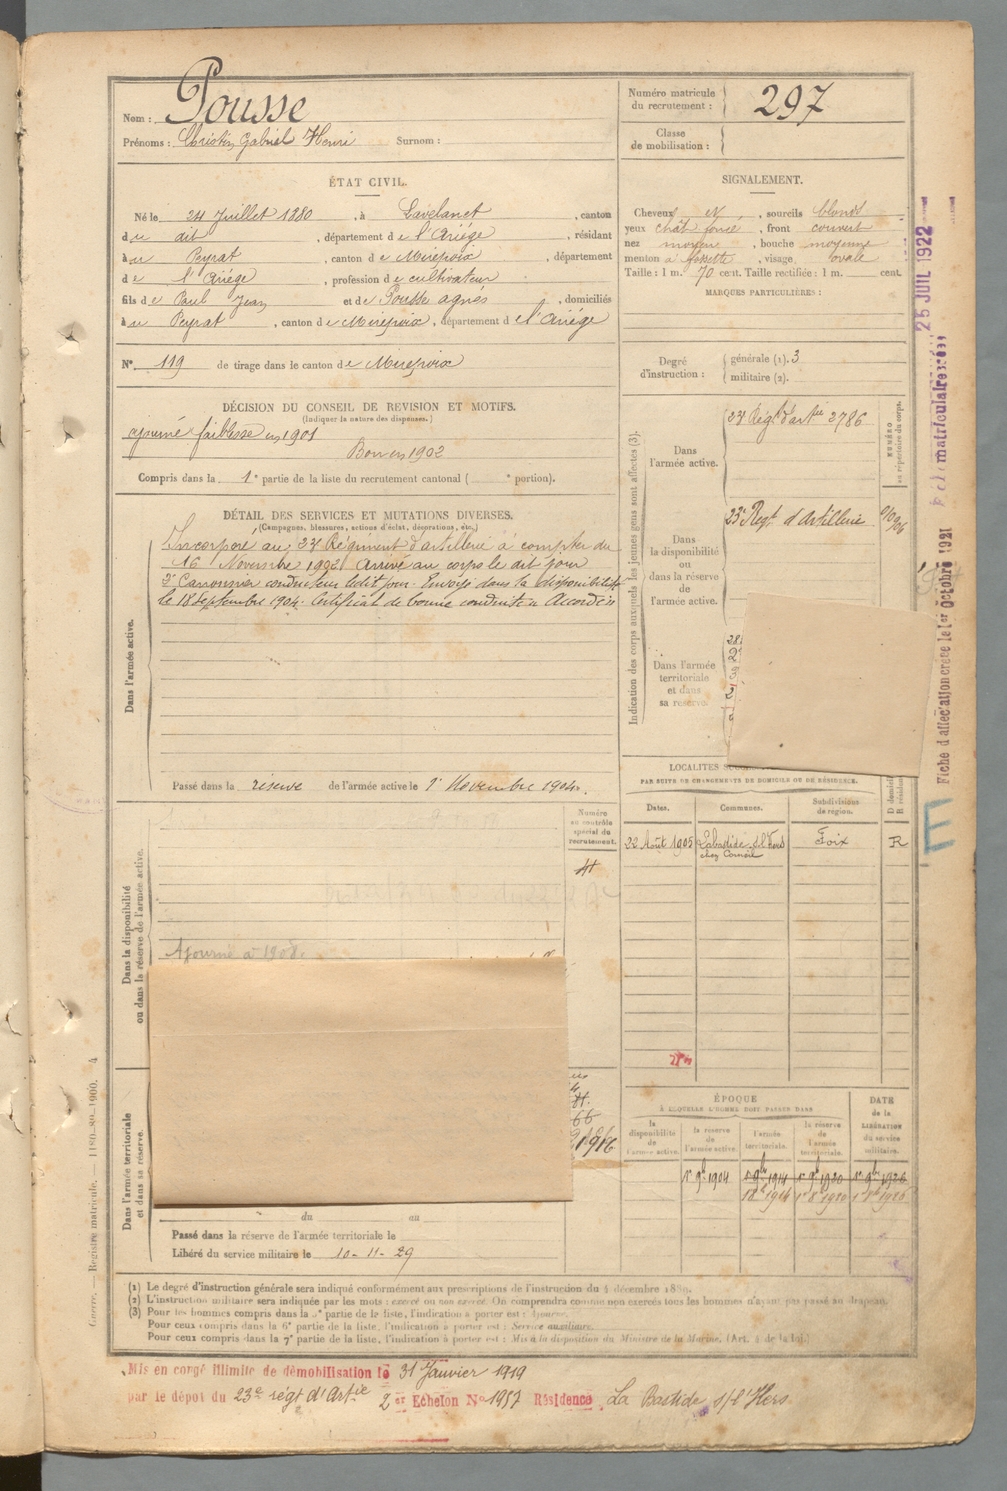 Nom : Pousse
Prénoms : Christin Gabriel Henri Surnom :
Numéro matricule du recrutement : 297
Classe de mobilisation :
ÉTAT CIVIL.
Né le 24 Juillet 1880, à Lavelanet, canton
du dit, département de l'Ariège, résidant
à u Peyrat, canton de Mirepoix, département
de l'Ariège, profession de cultivateur
fils de Paul Jean et de Pousse agnès, domiciliés
à u Peyrat, canton de Mirepoix, département de l'Ariège
N° 119 de tirage dans le canton de Mirepoix
SIGNALEMENT.
Cheveux et, sourcils blonds
yeux chât foncé, front couvert
nez moyen, bouche moyenne
menton à fossette, visage ovale
Taille : 1 m. 70 cent. Taille rectifiée : 1 m. cent.
MARQUES PARTICULIÈRES :
Degré d'instruction : générale (1). 3
militaire (2).
DÉCISION DU CONSEIL DE REVISION ET MOTIFS.
(Indiquer la nature des dispenses.)
ajourné faiblesse en 1901
Bon en 1902
Compris dans la 1e partie de la liste du recrutement cantonal ( e portion).
DÉTAIL DES SERVICES ET MUTATIONS DIVERSES.
(Campagnes, blessures, actions d'éclat, décorations, etc.)
Dans l'armée active.
Incorporé au 23e Régiment d'artillerie à compter du
16 Novembre 1902 Arrivé au corps le dit jour
2e Canonnier conducteur ledit jour. Envoyé dans la disponibilité
le 18 Septembre 1904. Certificat de bonne conduite Accordé
Passé dans la réserve de l'armée active le 1er Novembre 1904.
Indication des corps auxquels les jeunes gens sont affectés (3).
NUMÉRO au répertoire du corps.
Dans l'armée active.
23e Régt d'artie 2786
Dans la disponibilité ou dans la réserve de l'armée active.
23e Regt d'Artillerie
Dans l'armée territoriale et dans sa réserve.
LOCALITÉS
PAR SUITE DE CHANGEMENTS DE DOMICILE OU DE RÉSIDENCE.
Dates. Communes. Subdivisions de région. D domicile R résidence
22 Août 1905 Labastide s/l'Hers Foix R
chez Corneil
Dans la disponibilité ou dans la réserve de l'armée active.
Numéro au contrôle spécial du recrutement.
Ajourné à 1908.
Dans l'armée territoriale et dans sa réserve.
1916
du au
Passé dans la réserve de l'armée territoriale le
Libéré du service militaire le 10-11-29
ÉPOQUE
À LAQUELLE L'HOMME DOIT PASSER DANS
la disponibilité de l'armée active.
la réserve de l'armée active.
l'armée territoriale.
la réserve de l'armée territoriale.
DATE de la LIBÉRATION du service militaire.
1er 9bre 1904 1er 9bre 1914 1er 9bre 1920 1er 9bre 1926
(1) Le degré d'instruction générale sera indiqué conformément aux prescriptions de l'instruction du 4 décembre 1889.
(2) L'instruction militaire sera indiquée par les mots : exercé ou non exercé. On comprendra comme non exercés tous les hommes n'ayant pas passé au drapeau.
(3) Pour les hommes compris dans la 5e partie de la liste, l'indication à porter est : Ajourné.
Pour ceux compris dans la 6e partie de la liste, l'indication à porter est : Service auxiliaire.
Pour ceux compris dans la 7e partie de la liste, l'indication à porter est : Mis à la disposition du Ministre de la Marine. (Art. 4 de la loi.)
Mis en congé illimité de démobilisation le 31 Janvier 1919
par le dépôt du 23e régt d'Artie 2er Echelon No 1957 Résidence La Bastide s/l'Hers
Guerre. — Registre matricule. — 1180-89-1900. 4
25 JUIL 1922
Fiche d'affectation créée le 1er Octobre 1921
E